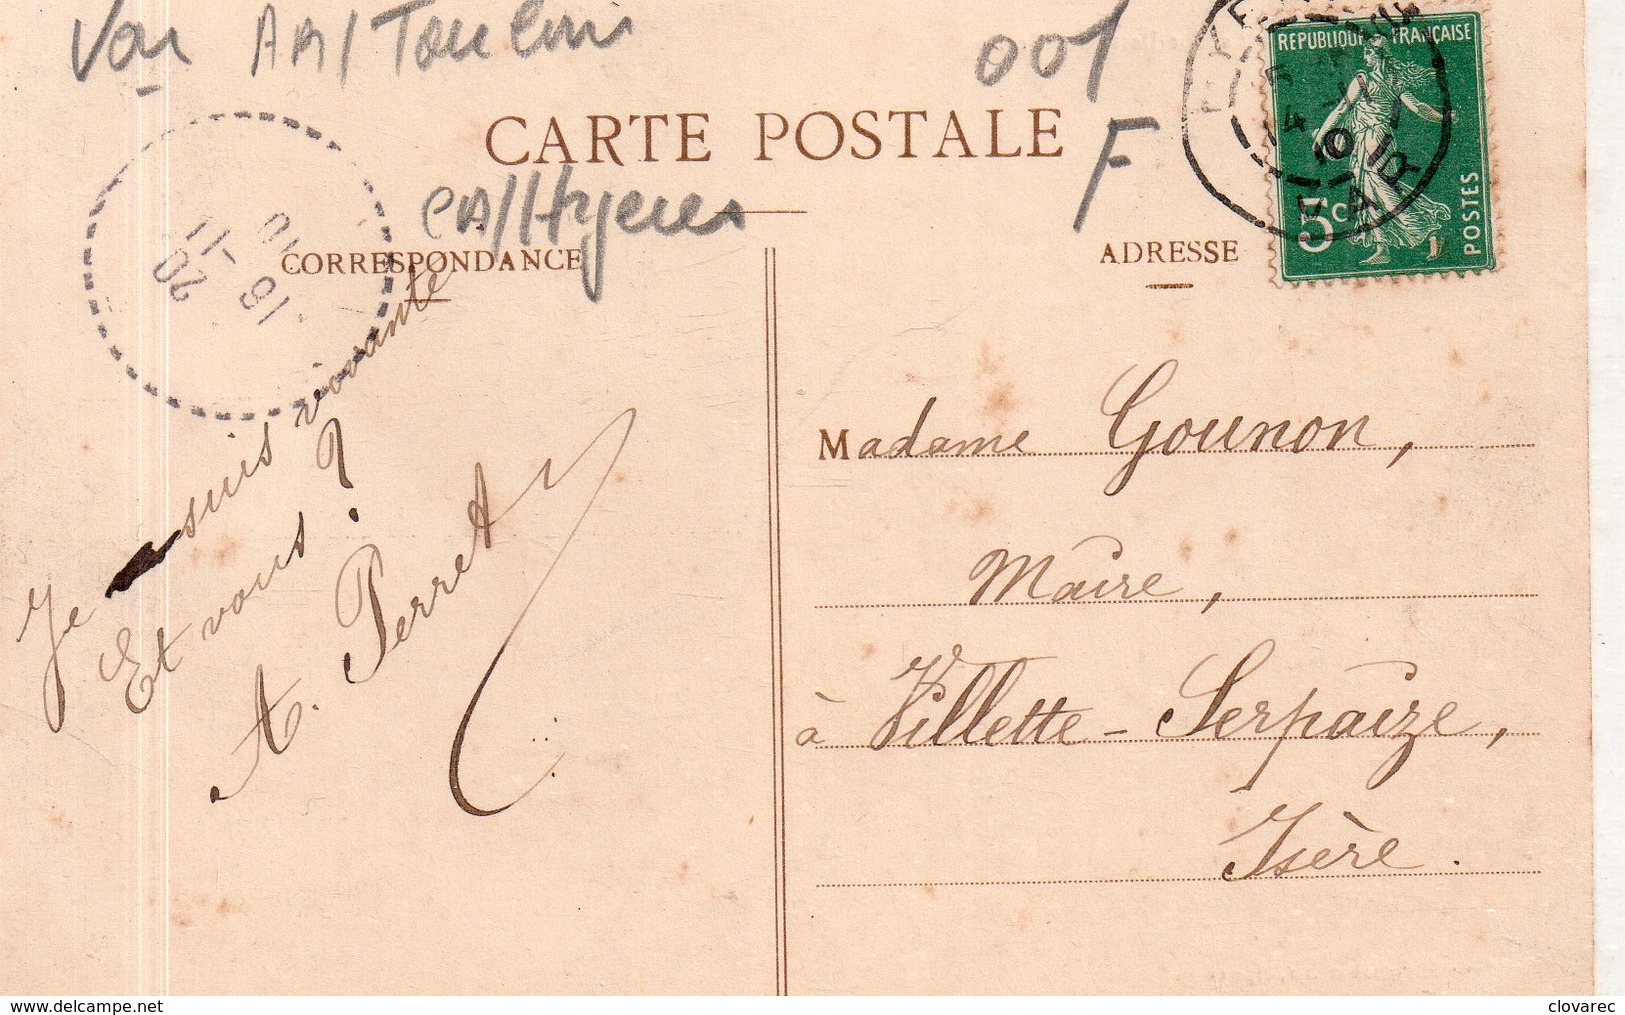 Var AR/Toulon
001
CARTE POSTALE
F
CA/Hyeres
RÉPUBLIQUE FRANÇAISE
10
VAR
5c
POSTES
20
-11
10
16
CORRESPONDANCE
ADRESSE
Je suis vivante
Et vous ?
A. Perret
Madame Gounon,
Maire,
à Villette-Serpaize,
Isère.
clovarec